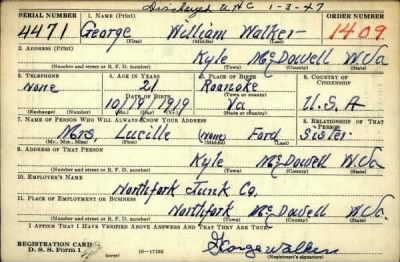 Discharged U.H.C 1-3-47
SERIAL NUMBER 1. NAME (Print) ORDER NUMBER
4471 George William Walker 1409
(First) (Middle) (Last)
2. ADDRESS (Print)
Kyle McDowell W.Va
(Number and street or R. F. D. number) (Town) (County) (State)
3. TELEPHONE 4. AGE IN YEARS 5. PLACE OF BIRTH 6. COUNTRY OF CITIZENSHIP
None 21 Roanoke
DATE OF BIRTH (Town or county)
10/19/1919 Va U.S.A
(Exchange) (Number) (Mo.) (Day) (Yr.) (State or country)
7. NAME OF PERSON WHO WILL ALWAYS KNOW YOUR ADDRESS 8. RELATIONSHIP OF THAT PERSON
Mrs, Lucille (None) Ford Sister
(Mr., Mrs., Miss) (First) (Middle) (Last)
9. ADDRESS OF THAT PERSON
Kyle McDowell W.Va
(Number and street or R. F. D. number) (Town) (County) (State)
10. EMPLOYER'S NAME
Northfork Junk Co.
11. PLACE OF EMPLOYMENT OR BUSINESS
Northfork McDowell W.Va.
(Number and street or R. F. D. number) (Town) (County) (State)
I AFFIRM THAT I HAVE VERIFIED ABOVE ANSWERS AND THAT THEY ARE TRUE.
REGISTRATION CARD
D. S. S. Form 1 (over) 16-17105 George Walker
(Registrant's signature)